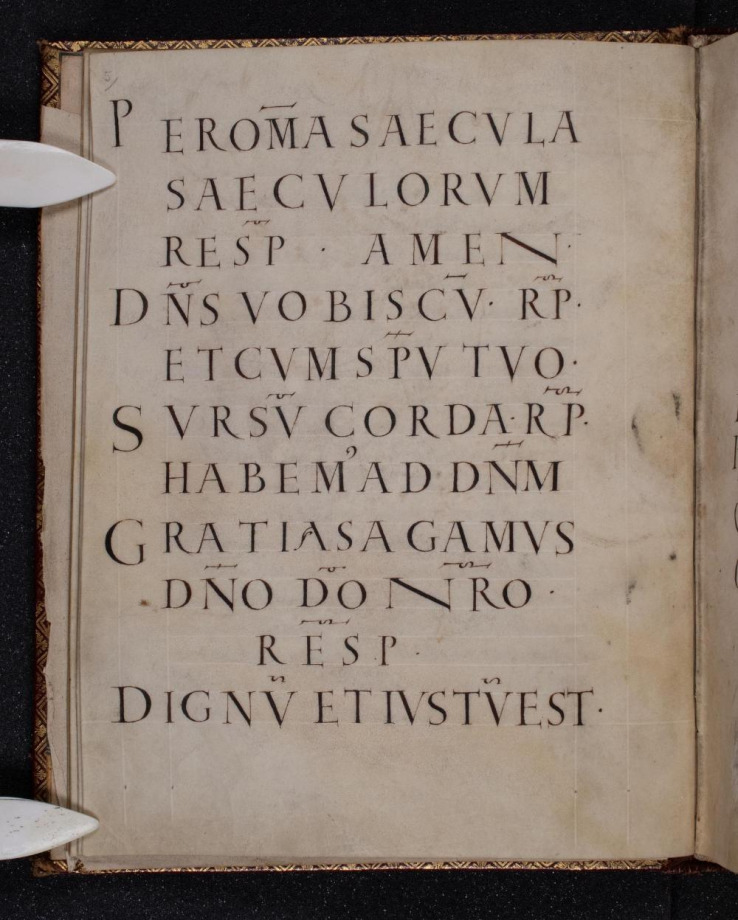 PEROM̄A SAECVLA
SAECVLORVM
RESP̄ · AMEN·
DN̄S VOBISCV̄· RP̄·
ETCVM SP̄V TVO·
SVRSV̄ CORDA·RP̄·
HABEMꝰ AD DN̄M
GRATIAS AGAMVS
DN̄O D̄O NR̄O·
RESP̄·
DIGNV̄ ET IVSTV̄ EST·